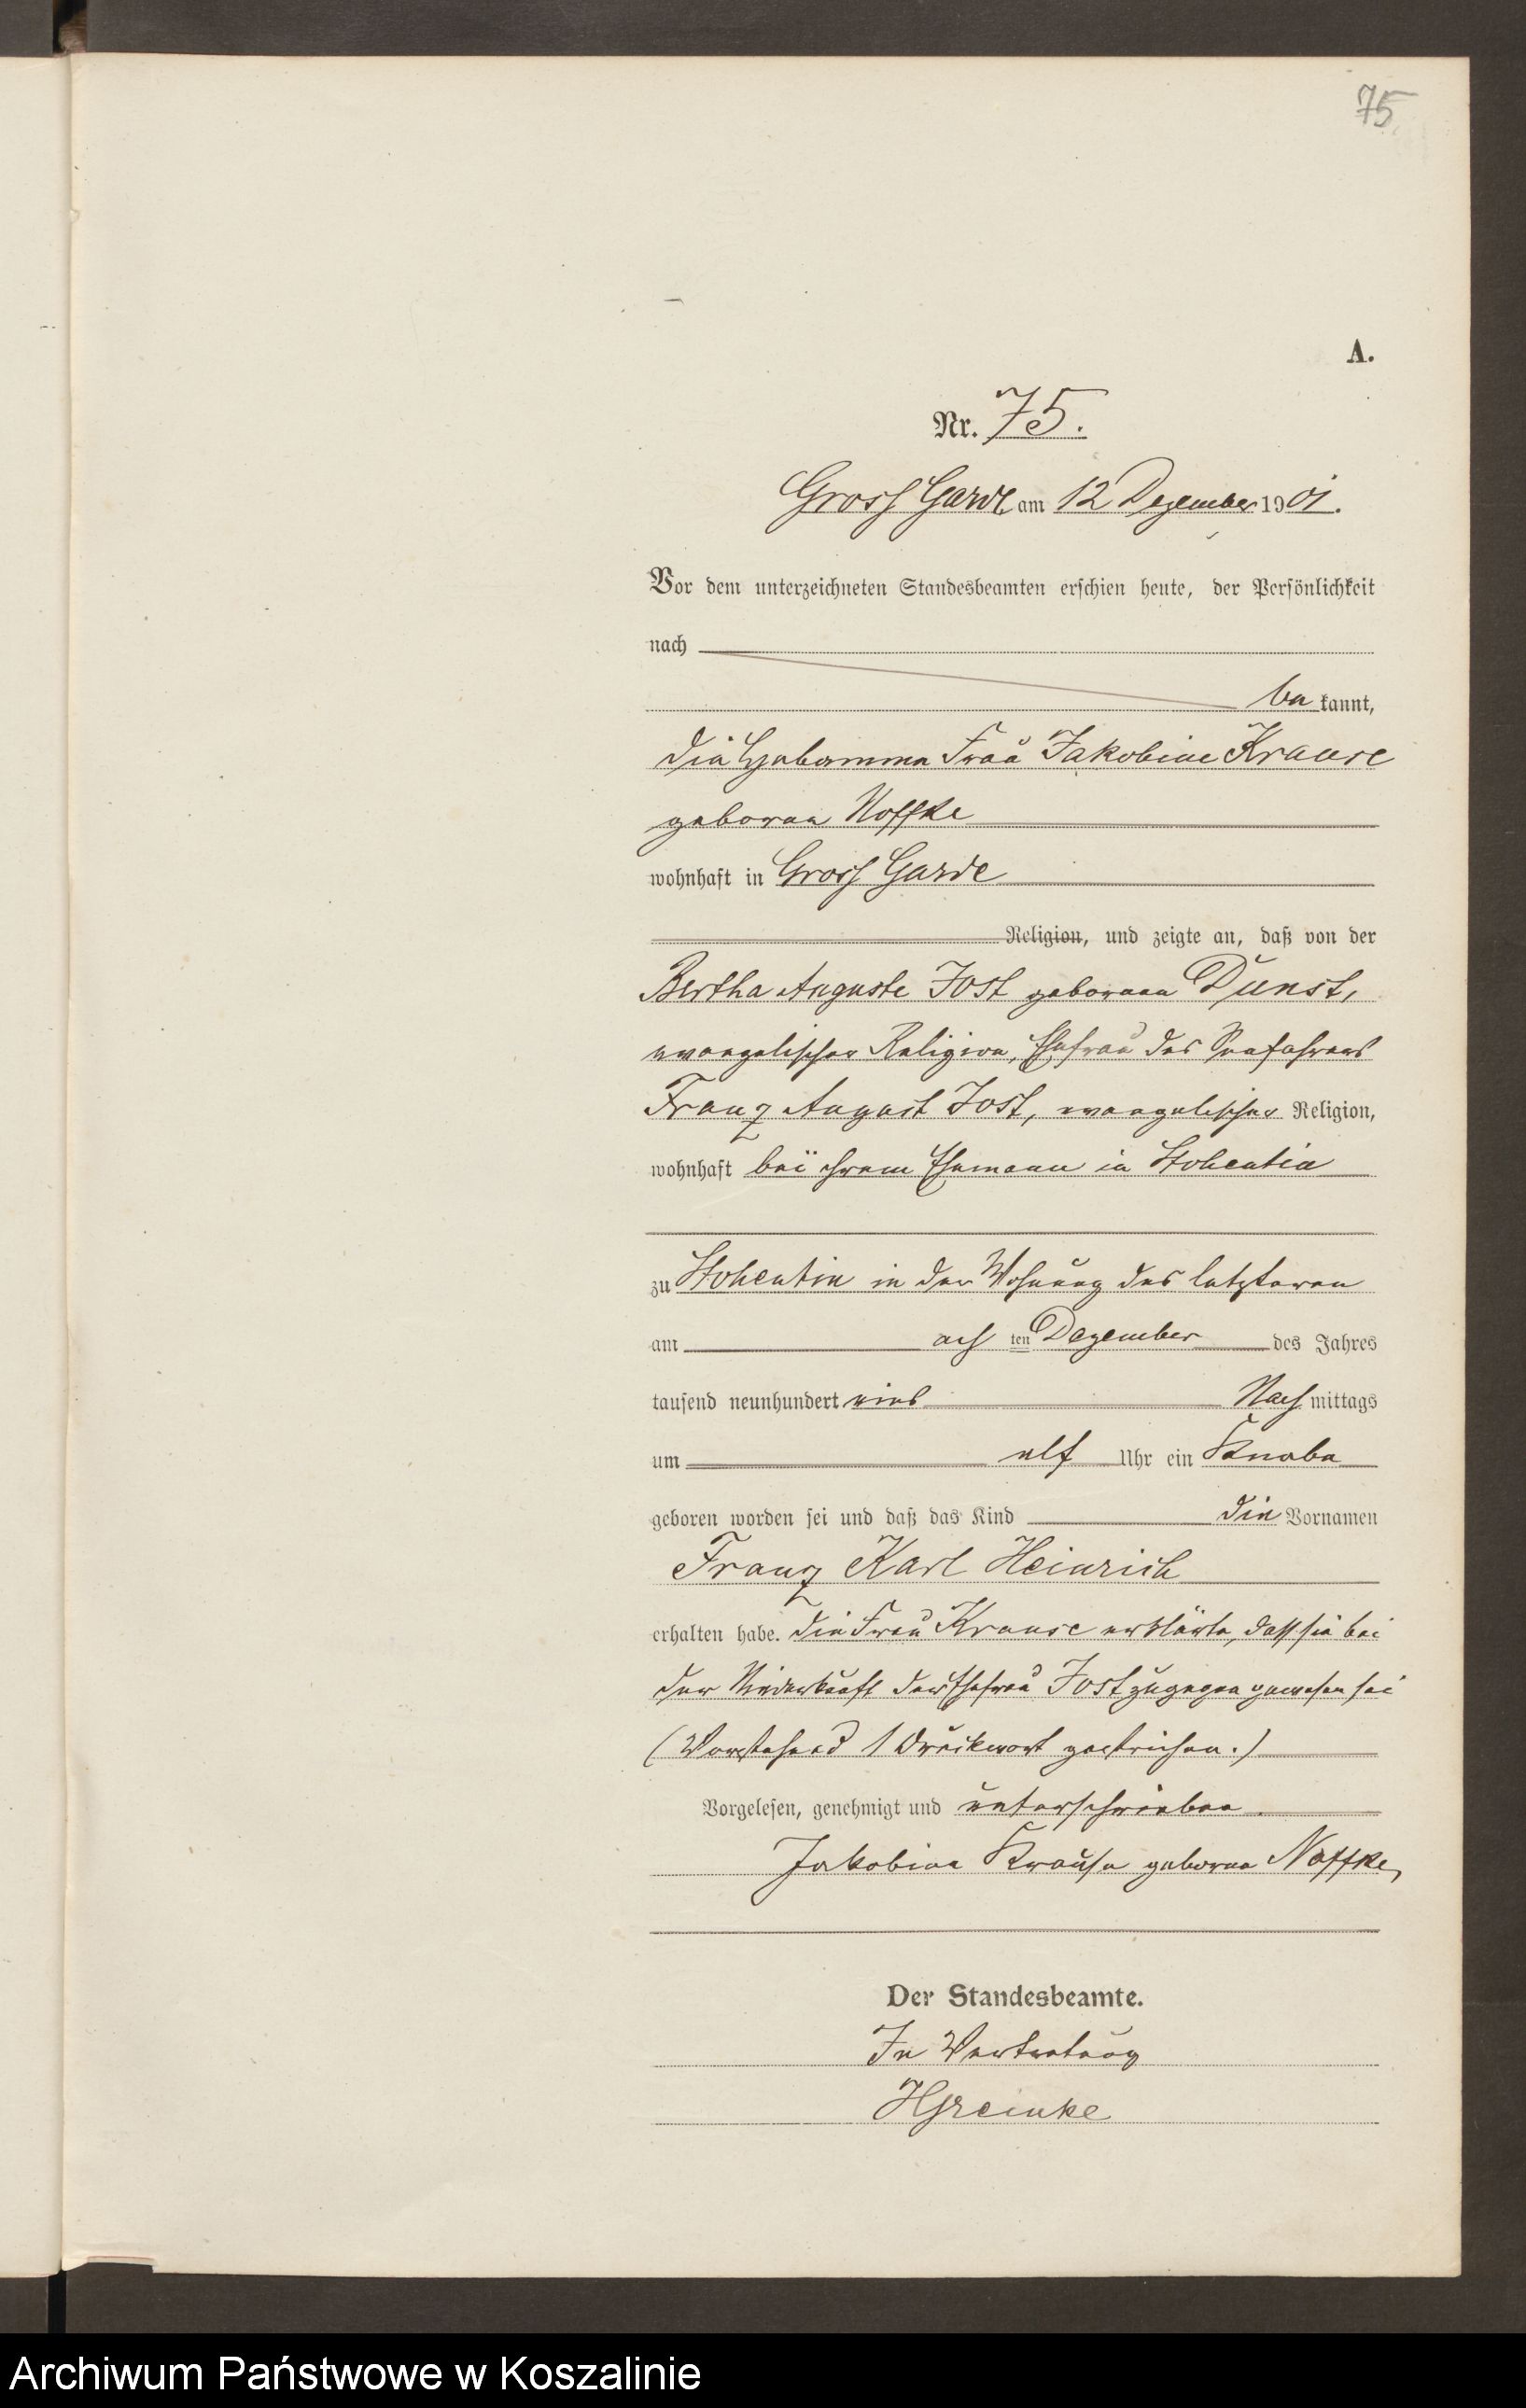 75
A.
Nr. 75.
Gross Garde am 12 Dezember 1901.
Vor dem unterzeichneten Standesbeamten erschien heute, der Persönlichkeit
nach
be kannt,
die Hebamme Frau Jakobine Krause
geborne Noffke
wohnhaft in Gross Garde
Religion, und zeigte an, daß von der
Bertha Auguste Jost gebornen Dunst,
evangelischer Religion, Ehefrau des Seefahrers
Franz August Jost, evangelischer Religion,
wohnhaft bei ihrem Ehemann in Stohentin
zu Stohentin in der Wohnung des letzteren
am ach ten Dezember des Jahres
tausend neunhundert eins Nach mittags
um elf Uhr ein Knabe
geboren worden sei und daß das Kind die Vornamen
Franz Karl Heinrich
erhalten habe. Die Frau Krause erklärte, daß sie bei
der Niederkunft der Ehefrau Jost zugegen gewesen sei
(Vorstehend 1 Druckwort gestrichen.)
Vorgelesen, genehmigt und unterschrieben.
Jakobine Krause geborne Noffke,
Der Standesbeamte.
In Vertretung
HGreinke
Archiwum Państwowe w Koszalinie